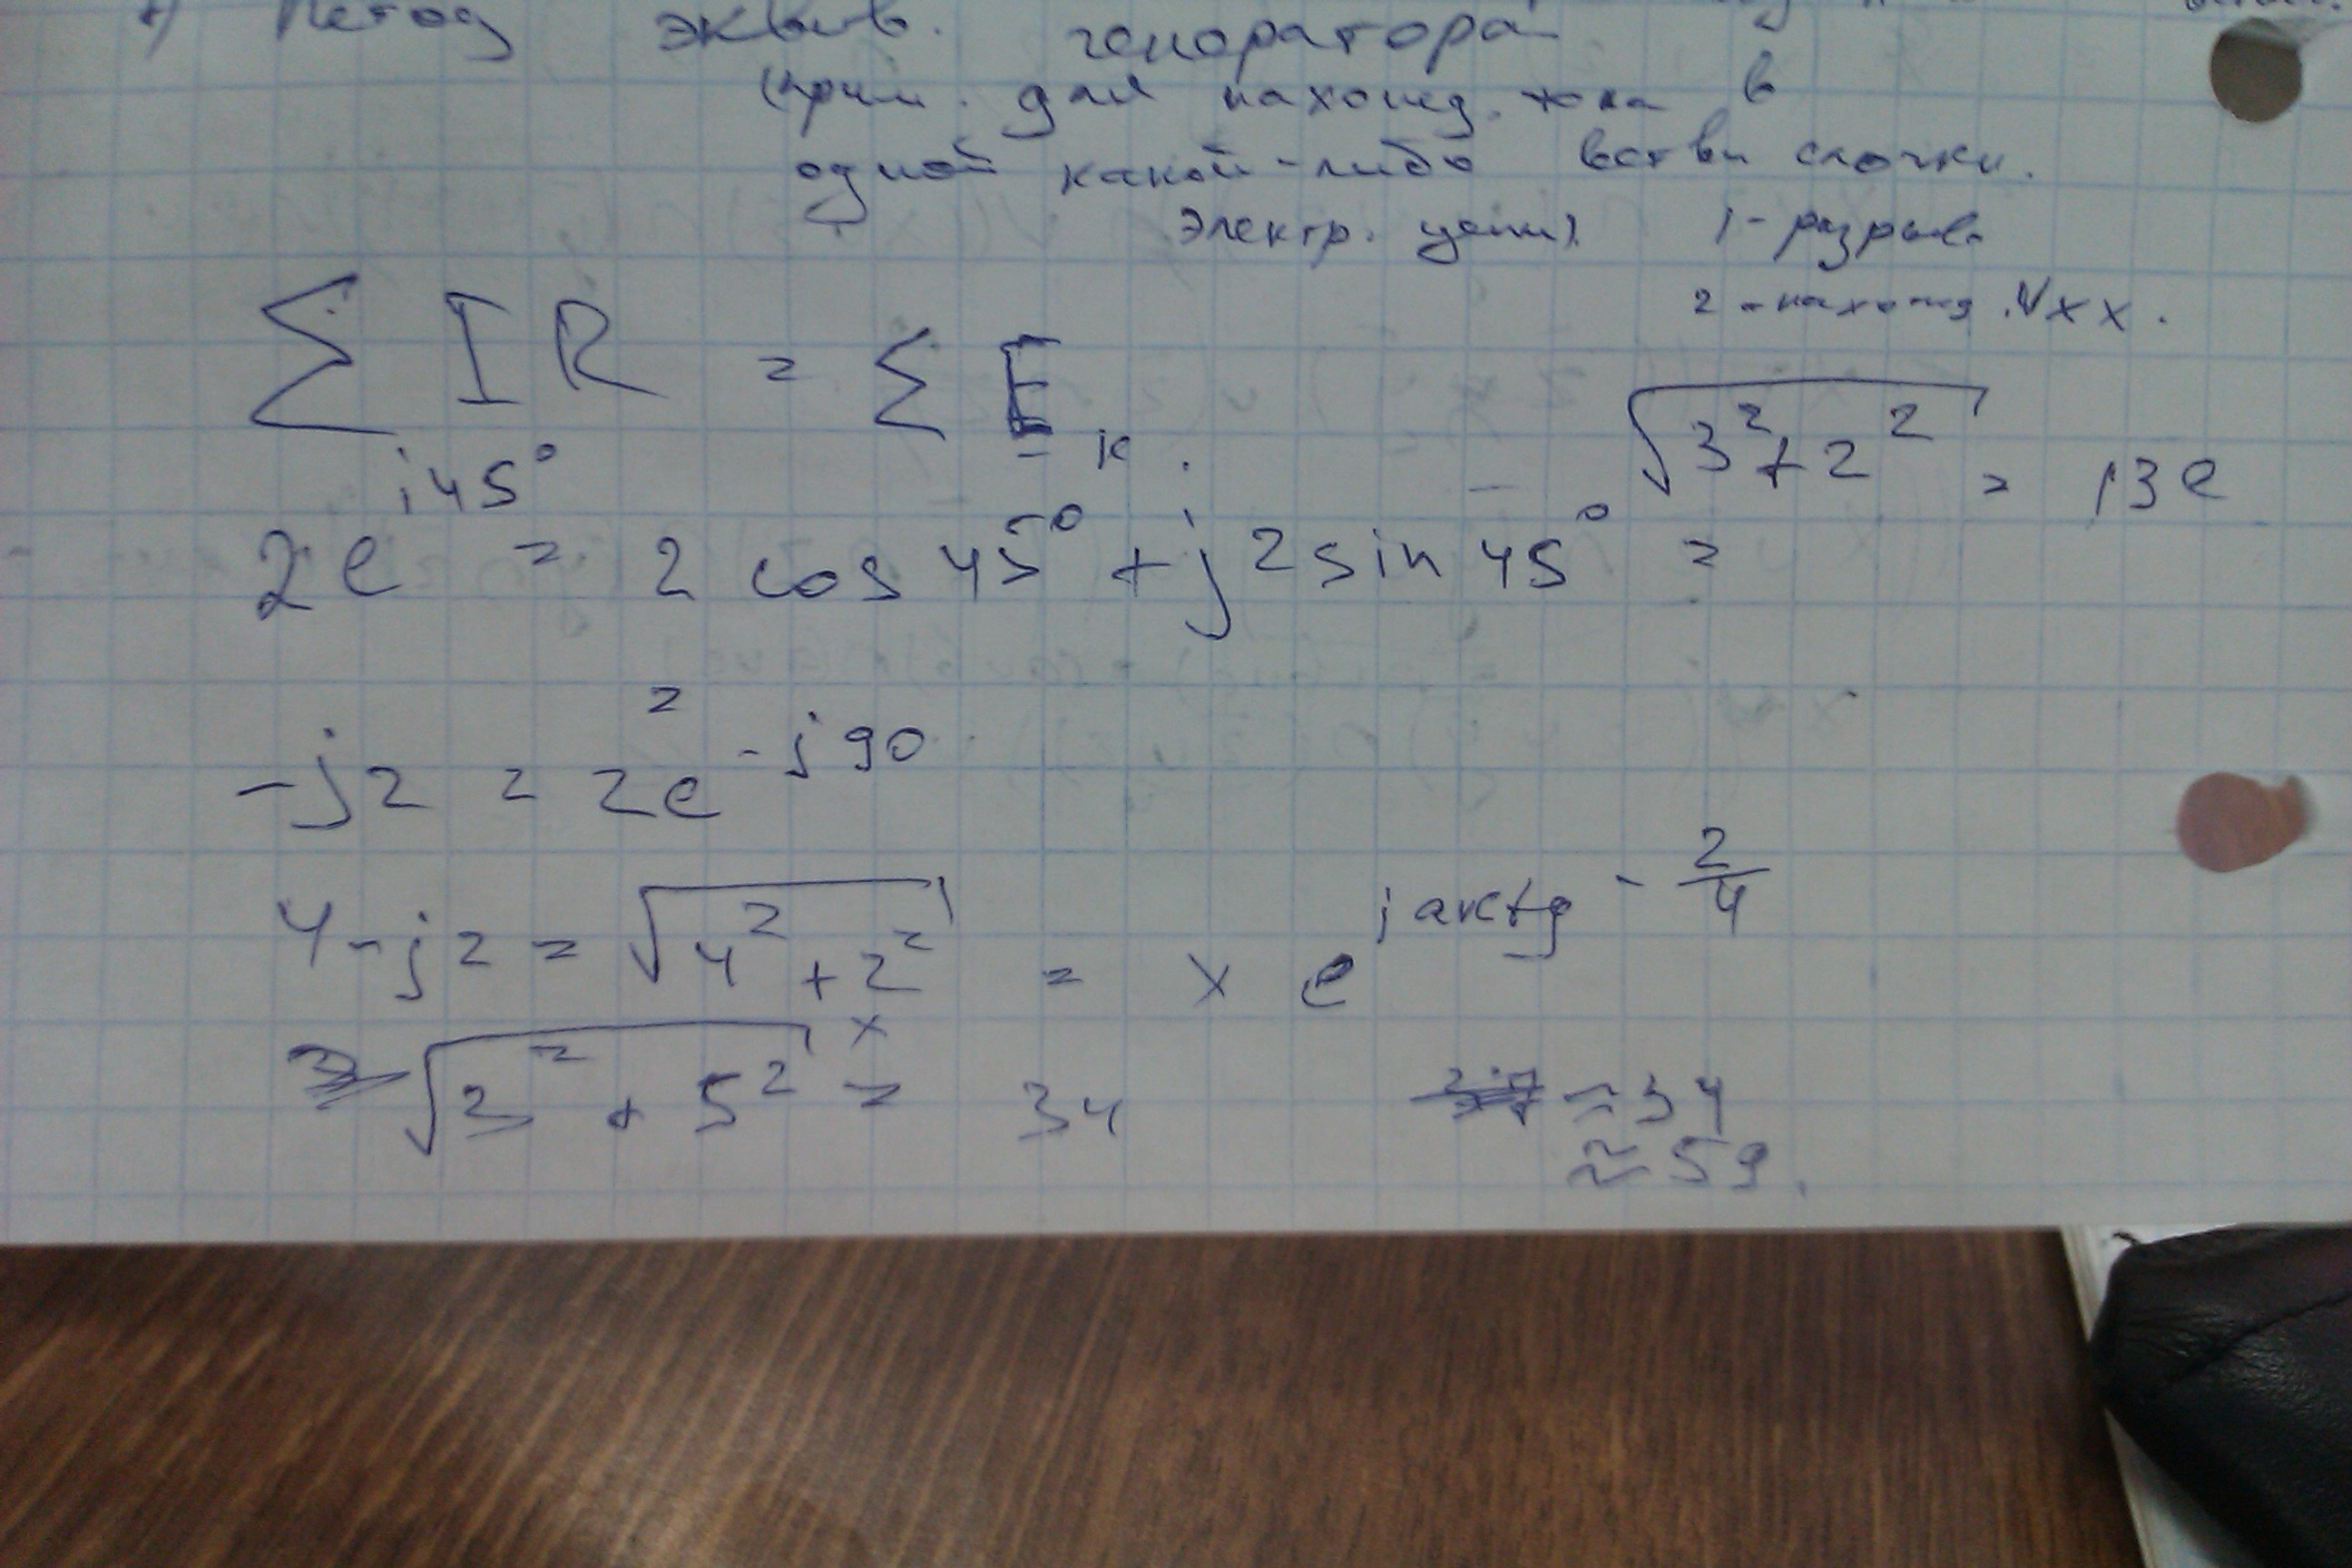 Метод эквив. генератора
(прим. для нахожд. тока в
одной какой-либо ветви сложн.
электр. цепи)
1 - разрыв
2 - нахожд. Uxx.
∑ IR = ∑ E_k.
√(3² + 2²) = 13e
2e^(j45°) = 2 cos 45° + j2 sin 45° =
=
-j2 = 2e^(-j90)
4 - j2 = √(4² + 2²) = x e^(j arctg - 2/4)
x
√(3² + 5²) = 34
≈ 34
≈ 59.